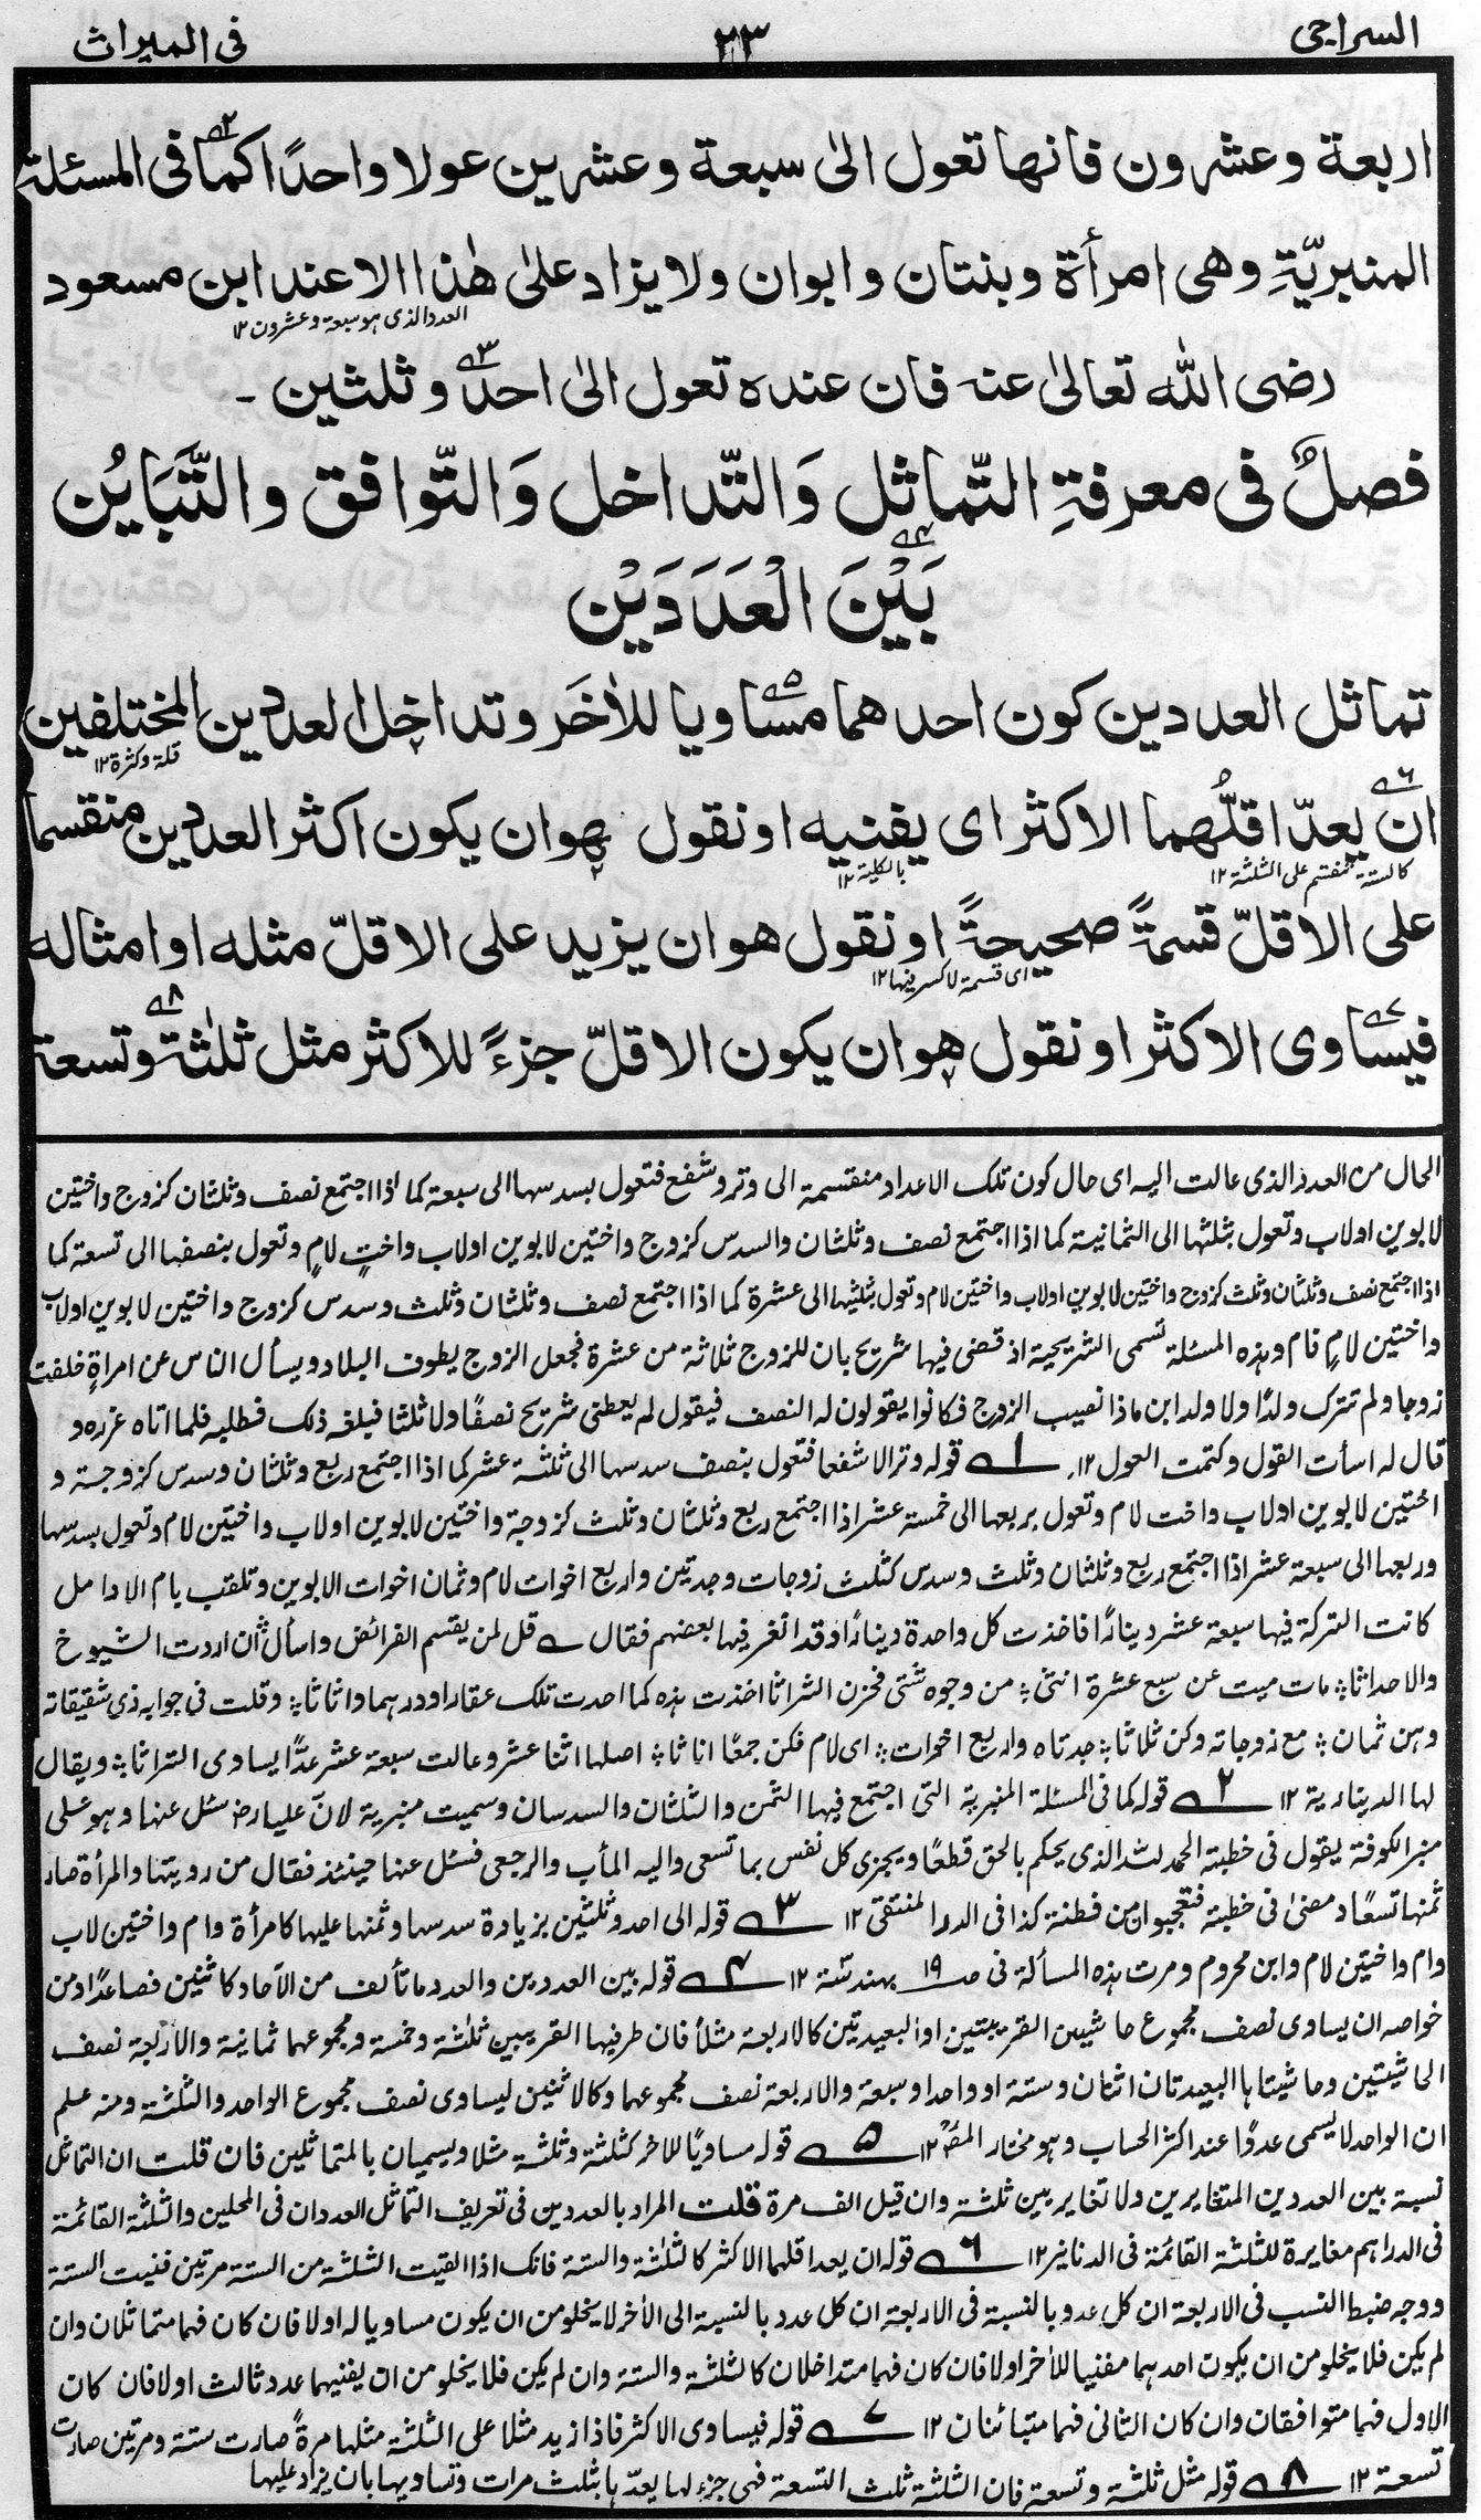 السراجی ۲۳ فی المیراث
اربعة وعشرون فانها تعول الیٰ سبعة وعشرین عولا واحدًا کما۲ فی المسئلة
المنبریّةِ وهی امرأة وبنتان وابوان ولا یزاد علیٰ هٰذا الا عند ابن مسعود
العدد الذی هو سبعة وعشرون ۱۲
رضی الله تعالیٰ عنه فان عنده تعول الیٰ احد۳ وثلثین ۔
فصلٌ فی معرفةِ التّماثل وَالتّداخل وَالتّوافق والتَّبَایُن
بَیْنَ۴ الْعَدَدَیْن
تماثل العددین کون احدهما مساویا۵ للاٰخَر وتداخل العددین المختلفین
قلة وکثرة ۱۲
ان۶ یعدّ اقلُّهما الاکثر ای یفنیه او نقول هو ان یکون اکثر العددین منقسما
کالستة منقسم علی الثلثة ۱۲ بالکلیة ۱۲
علی الاقلّ قسمةً صحیحةً او نقول هو ان یزید علی الاقلّ مثله او امثاله
ای قسمة لا کسر فیها ۱۲
فیساوی۷ الاکثر او نقول هو ان یکون الاقلّ جزءً للاکثر مثل ثلٰثة۸ وتسعة
الحال من العدد الذی عالت الیه ای حال کون تلک الاعداد منقسمة الی وتر وشفع فتعول بسدسها الی سبعة کما اذا اجتمع نصف وثلثان کزوج واختین
لابوین اولاب وتعول بثلثها الی الثمانیة کما اذا اجتمع نصف وثلثان والسدس کزوج واختین لابوین اولاب واختٍ لامٍ وتعول بنصفها الی تسعة کما
اذا اجتمع نصف وثلثان وثلث کزوج واختین لابوین اولاب واختین لام وتعول بثلثیها الی عشرة کما اذا اجتمع نصف وثلثان وثلث وسدس کزوج واختین لابوین اولاب
واختین لامٍ فام وهذه المسئلة تسمی الشریحیة اذ قضی فیها شریح بان للزوج ثلاثة من عشرة فجعل الزوج یطوف البلاد ویسأل الناس عن امراةٍ خلفت
زوجا ولم تترک ولدًا ولا ولد ابن ماذا نصیب الزوج فکانوا یقولون له النصف فیقول لم یعطنی شریح نصفًا ولا ثلثا فبلغه ذلک فطلبه فلما اتاه عزره و
قال له اسأت القول وکتمت العول ۱۲ ۱ قوله وترا لا شفعا فتعول بنصف سدسها الی ثلثة عشر کما اذا اجتمع ربع وثلثان وسدس کزوجة و
اختین لابوین اولاب واخت لام وتعول بربعها الی خمسة عشر اذا اجتمع ربع وثلثان وثلث کزوجة واختین لابوین اولاب واختین لام وتعول بسدسها
وربعها الی سبعة عشر اذا اجتمع ربع وثلثان وثلث وسدس کثلث زوجات وجدتین واربع اخوات لام وثمان اخوات لابوین وتلقب بام الارامل
کانت الترکة فیها سبعة عشر دینارًا فاخذت کل واحدة دینارًا وقد الغز فیها بعضهم فقال قل لمن یقسم الفرائض واسأل ان اردت الشیوخ
والاحداثا مات میت عن سبع عشرة انثی من وجوه شتی فحزن التراثا اخذت هذه کما اخذت تلک عقارا ودرهما واثاثا وقلت فی جوابه ذی شقیقاته
وهن ثمان مع زوجاته وکن ثلاثا جدتاه واربع اخوات ای لام فکن جمعًا اناثا اصلها اثنا عشر وعالت سبعة عشر عدًّا یساوی التراثا ویقال
لها الدیناریة ۱۲ ۲ قوله کما فی المسئلة المنبریة التی اجتمع فیها الثمن والثلثان والسدسان وسمیت منبریة لانّ علیا رض سئل عنها وهو علی
منبر الکوفة یقول فی خطبته الحمد لله الذی یحکم بالحق قطعًا ویجزی کل نفس بما تسعی والیه المأب والرجعی فسئل عنها حینئذ فقال من رویتها والمرأة صار
ثمنها تسعًا ومضیٰ فی خطبته فتعجبوا من فطنته کذا فی الدر المنتقی ۱۲ ۳ قوله الی احد وثلثین بزیادة سدسها وثمنها علیها کامرأة وام واختین لاب
وام واختین لام وابن محروم ومرت هذه المسألة فی صـ۱۹ ۱۲ ۴ قوله بین العددین والعدد ما تألف من الآحاد کاثنین فصاعدًا ومن
خواصه ان یساوی نصف مجموع حاشیتین القریبتین او البعیدتین کالاربعة مثلاً فان طرفیها القریبین ثلٰثة وخمسة ومجموعهما ثمانیة والاربعة نصف
الحاشیتین وحاشیتاها البعیدتان اثنان وستة او واحد وسبعة والاربعة نصف مجموعهما وکالاثنین لیساوی نصف مجموع الواحد والثلٰثة ومنه علم
ان الواحد لا یسمی عددًا عند اکثر الحساب وهو مختار المصؒ ۱۲ ۵ قوله مساویًا للاٰخر کثلثة وثلثة مثلا ویسمیان بالمتماثلین فان قلت ان التماثل
نسبة بین العددین المتغایرین ولا تغایر بین ثلثة وان قیل الف مرة قلت المراد بالعددین فی تعریف التماثل العددان فی المحلین والثلثة القائمة
فی الدراهم مغایرة للثلثة القائمة فی الدنانیر ۱۲ ۶ قوله ان یعد اقلهما الاکثر کالثلٰثة والستة فانک اذا القیت الثلثة من الستة مرتین فنیت الستة
ووجه ضبط النسب فی الاربعة ان کل عدد بالنسبة فی الاربعة ان کل عدد بالنسبة الی الاٰخر لا یخلو من ان یکون مساویا له اولا فان کان فهما متماثلان وان
لم یکن فلا یخلو من ان یکون احدهما مفنیا للاٰخر اولا فان کان فهما متداخلان کالثلٰثة والستة وان لم یکن فلا یخلو من ان یفنیهما عدد ثالث اولا فان کان
الاول فهما متوافقان وان کان الثانی فهما متبائنان ۱۲ ۷ قوله فیساوی الاکثر فاذا زید مثلا علی الثلٰثة مثلها مرةً صارت ستة ومرتین صارت
تسعة ۱۲ ۸ قوله مثل ثلثة وتسعة فان الثلثة ثلث التسعة فهی جزء لها یعدّها بثلث مرات وتساویها بان یزاد علیها